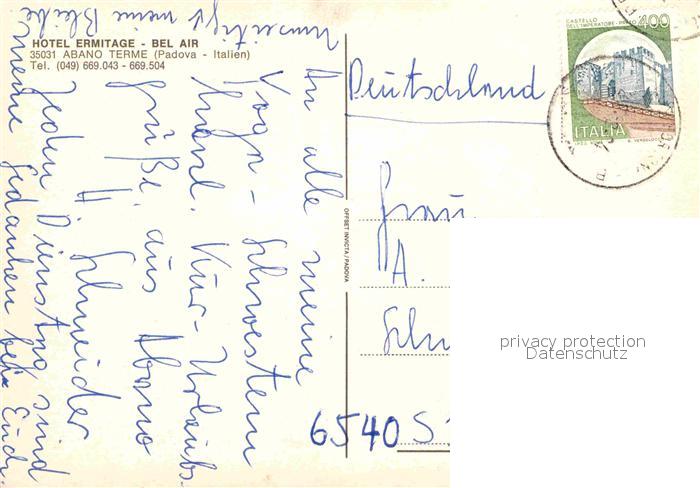 HOTEL ERMITAGE - BEL AIR
35031 ABANO TERME (Padova - Italien)
Tel. (049) 669.043 - 669.504
An alle meine
Yoga - Schwestern
Kur - Urlaubs
Grüße, aus Abano
H Schneider
Jeden Dienstag sind
meine Gedanken bei Euch.
Umseitig meine Bleibe
OFFSET INVICTA / PADOVA
CASTELLO
DELL'IMPERATORE - PRATO
400
ITALIA
Deutschland
Frau
A.
Schn
6540 S
privacy protection
Datenschutz